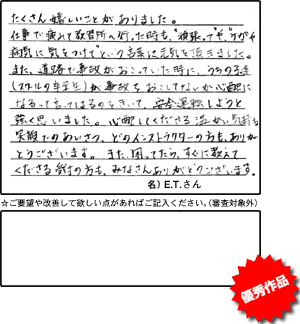 たくさん嬉しいことがありました。
仕事で疲れて教習所へ行った時も、"頑張って"や、"ケガや
病気に気をつけて"という言葉に元気を頂きました。
また、道路で事故がおこっていた時に、うちの子達
(スクールの卒業生)が事故をおこしてないか心配に
なるって言ってはるのをきいて、安全運転しようと
強く思いました。心配してくださる温かい気持ち
笑顔でのあいさつ、どのインストラクターの方も、ありが
とうございます。また、困ってたら、すぐに教えて
くださる受付の方も、みなさんありがとうございます。
名) E.T.さん
☆ご要望や改善して欲しい点があればご記入ください。(審査対象外)
優秀作品